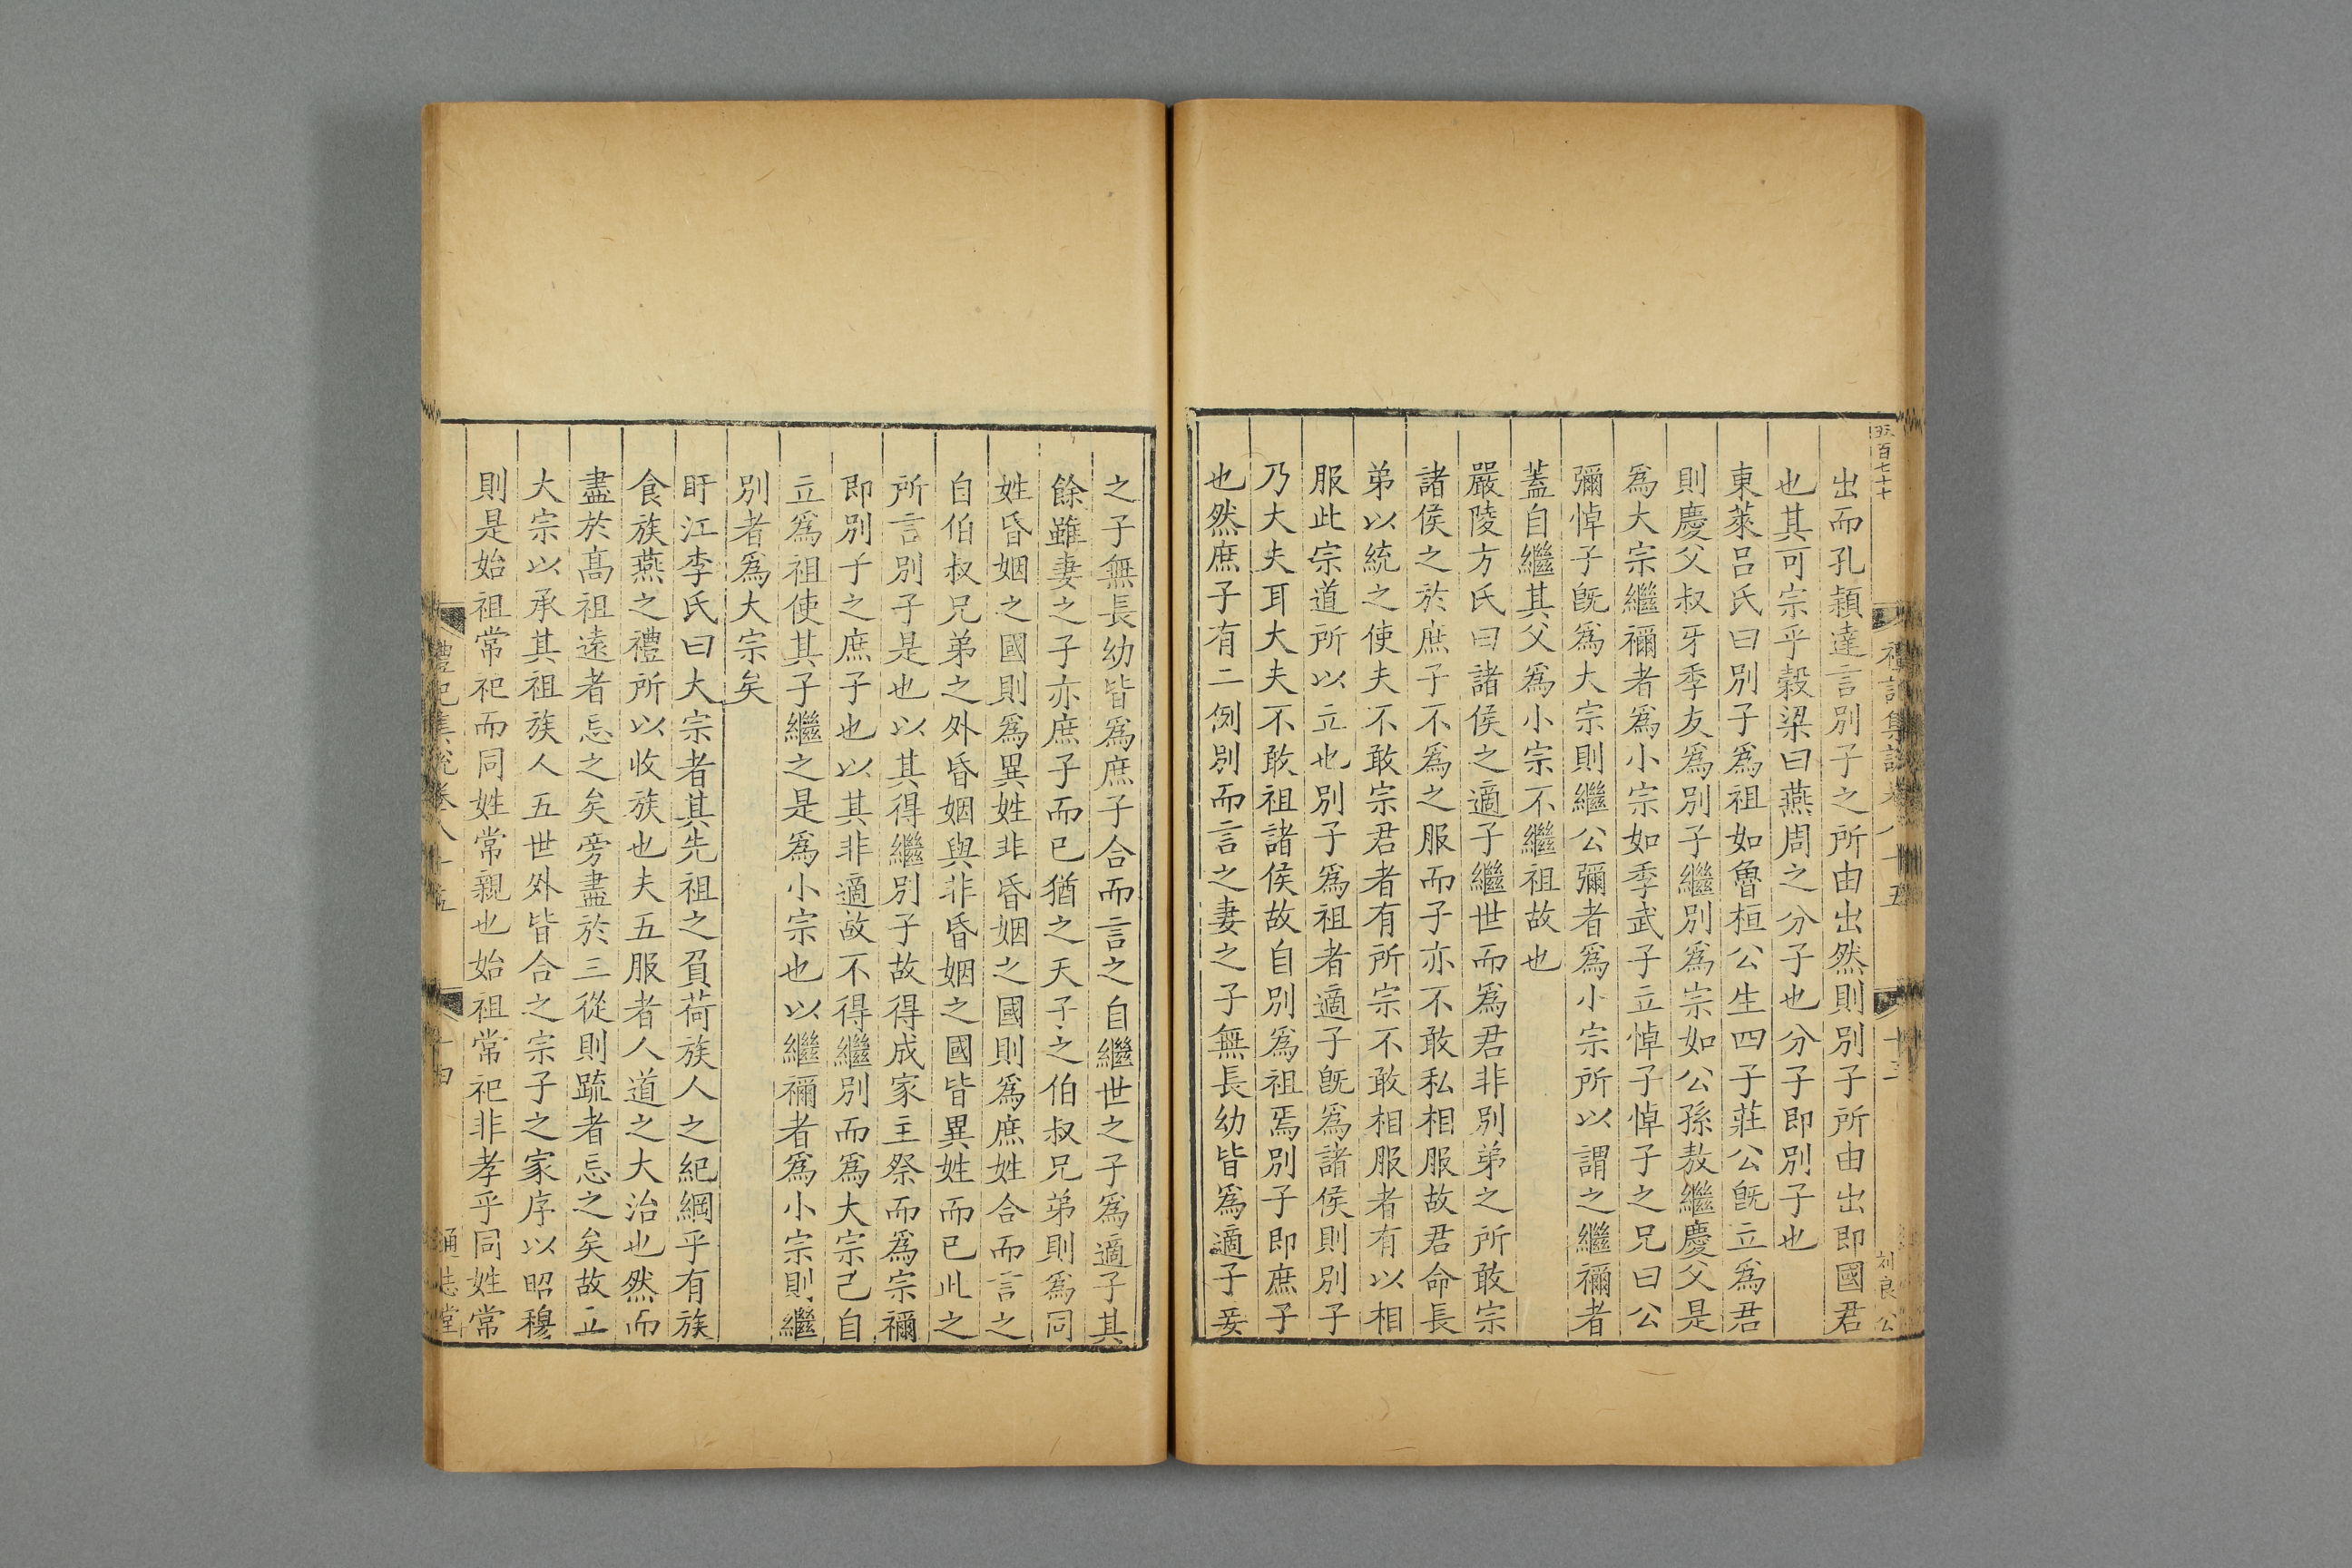 五百七十十
禮記集說卷八十五
十三
刘良公
出而孔穎達言別子之所由出然則別子所由出即國君
也其可宗乎穀梁曰燕周之分子也分子即別子也
東萊呂氏曰別子為祖如魯桓公生四子莊公旣立為君
則慶父叔牙季友為別子繼別為宗如公孫敖繼慶父是
為大宗繼禰者為小宗如季武子立悼子悼子之兄曰公
彌悼子旣為大宗則繼公彌者為小宗所以謂之繼禰者
蓋自繼其父為小宗不繼祖故也
嚴陵方氏曰諸侯之適子繼世而為君非別弟之所敢宗
諸侯之於庶子不為之服而子亦不敢私相服故君命長
弟以統之使夫不敢宗君者有所宗不敢相服者有以相
服此宗道所以立也別子為祖者適子旣為諸侯則別子
乃大夫耳大夫不敢祖諸侯故自別為祖焉別子即庶子
也然庶子有二例別而言之妻之子無長幼皆為適子妾
之子無長幼皆為庶子合而言之自繼世之子為適子其
餘雖妻之子亦庶子而已猶之天子之伯叔兄弟則為同
姓昏姻之國則為異姓非昏姻之國則為庶姓合而言之
自伯叔兄弟之外昏姻與非昏姻之國皆異姓而已此之
所言別子是也以其得繼別子故得成家主祭而為宗禰
即別子之庶子也以其非適故不得繼別而為大宗己自
立為祖使其子繼之是為小宗也以繼禰者為小宗則繼
別者為大宗矣
盱江李氏曰大宗者其先祖之負荷族人之紀綱乎有族
食族燕之禮所以收族也夫五服者人道之大治也然而
盡於高祖遠者忘之矣旁盡於三從則疏者忘之矣故立
大宗以承其祖族人五世外皆合之宗子之家序以昭穆
則是始祖常祀而同姓常親也始祖常祀非孝乎同姓常
禮記集說卷八十五
十四
通志堂